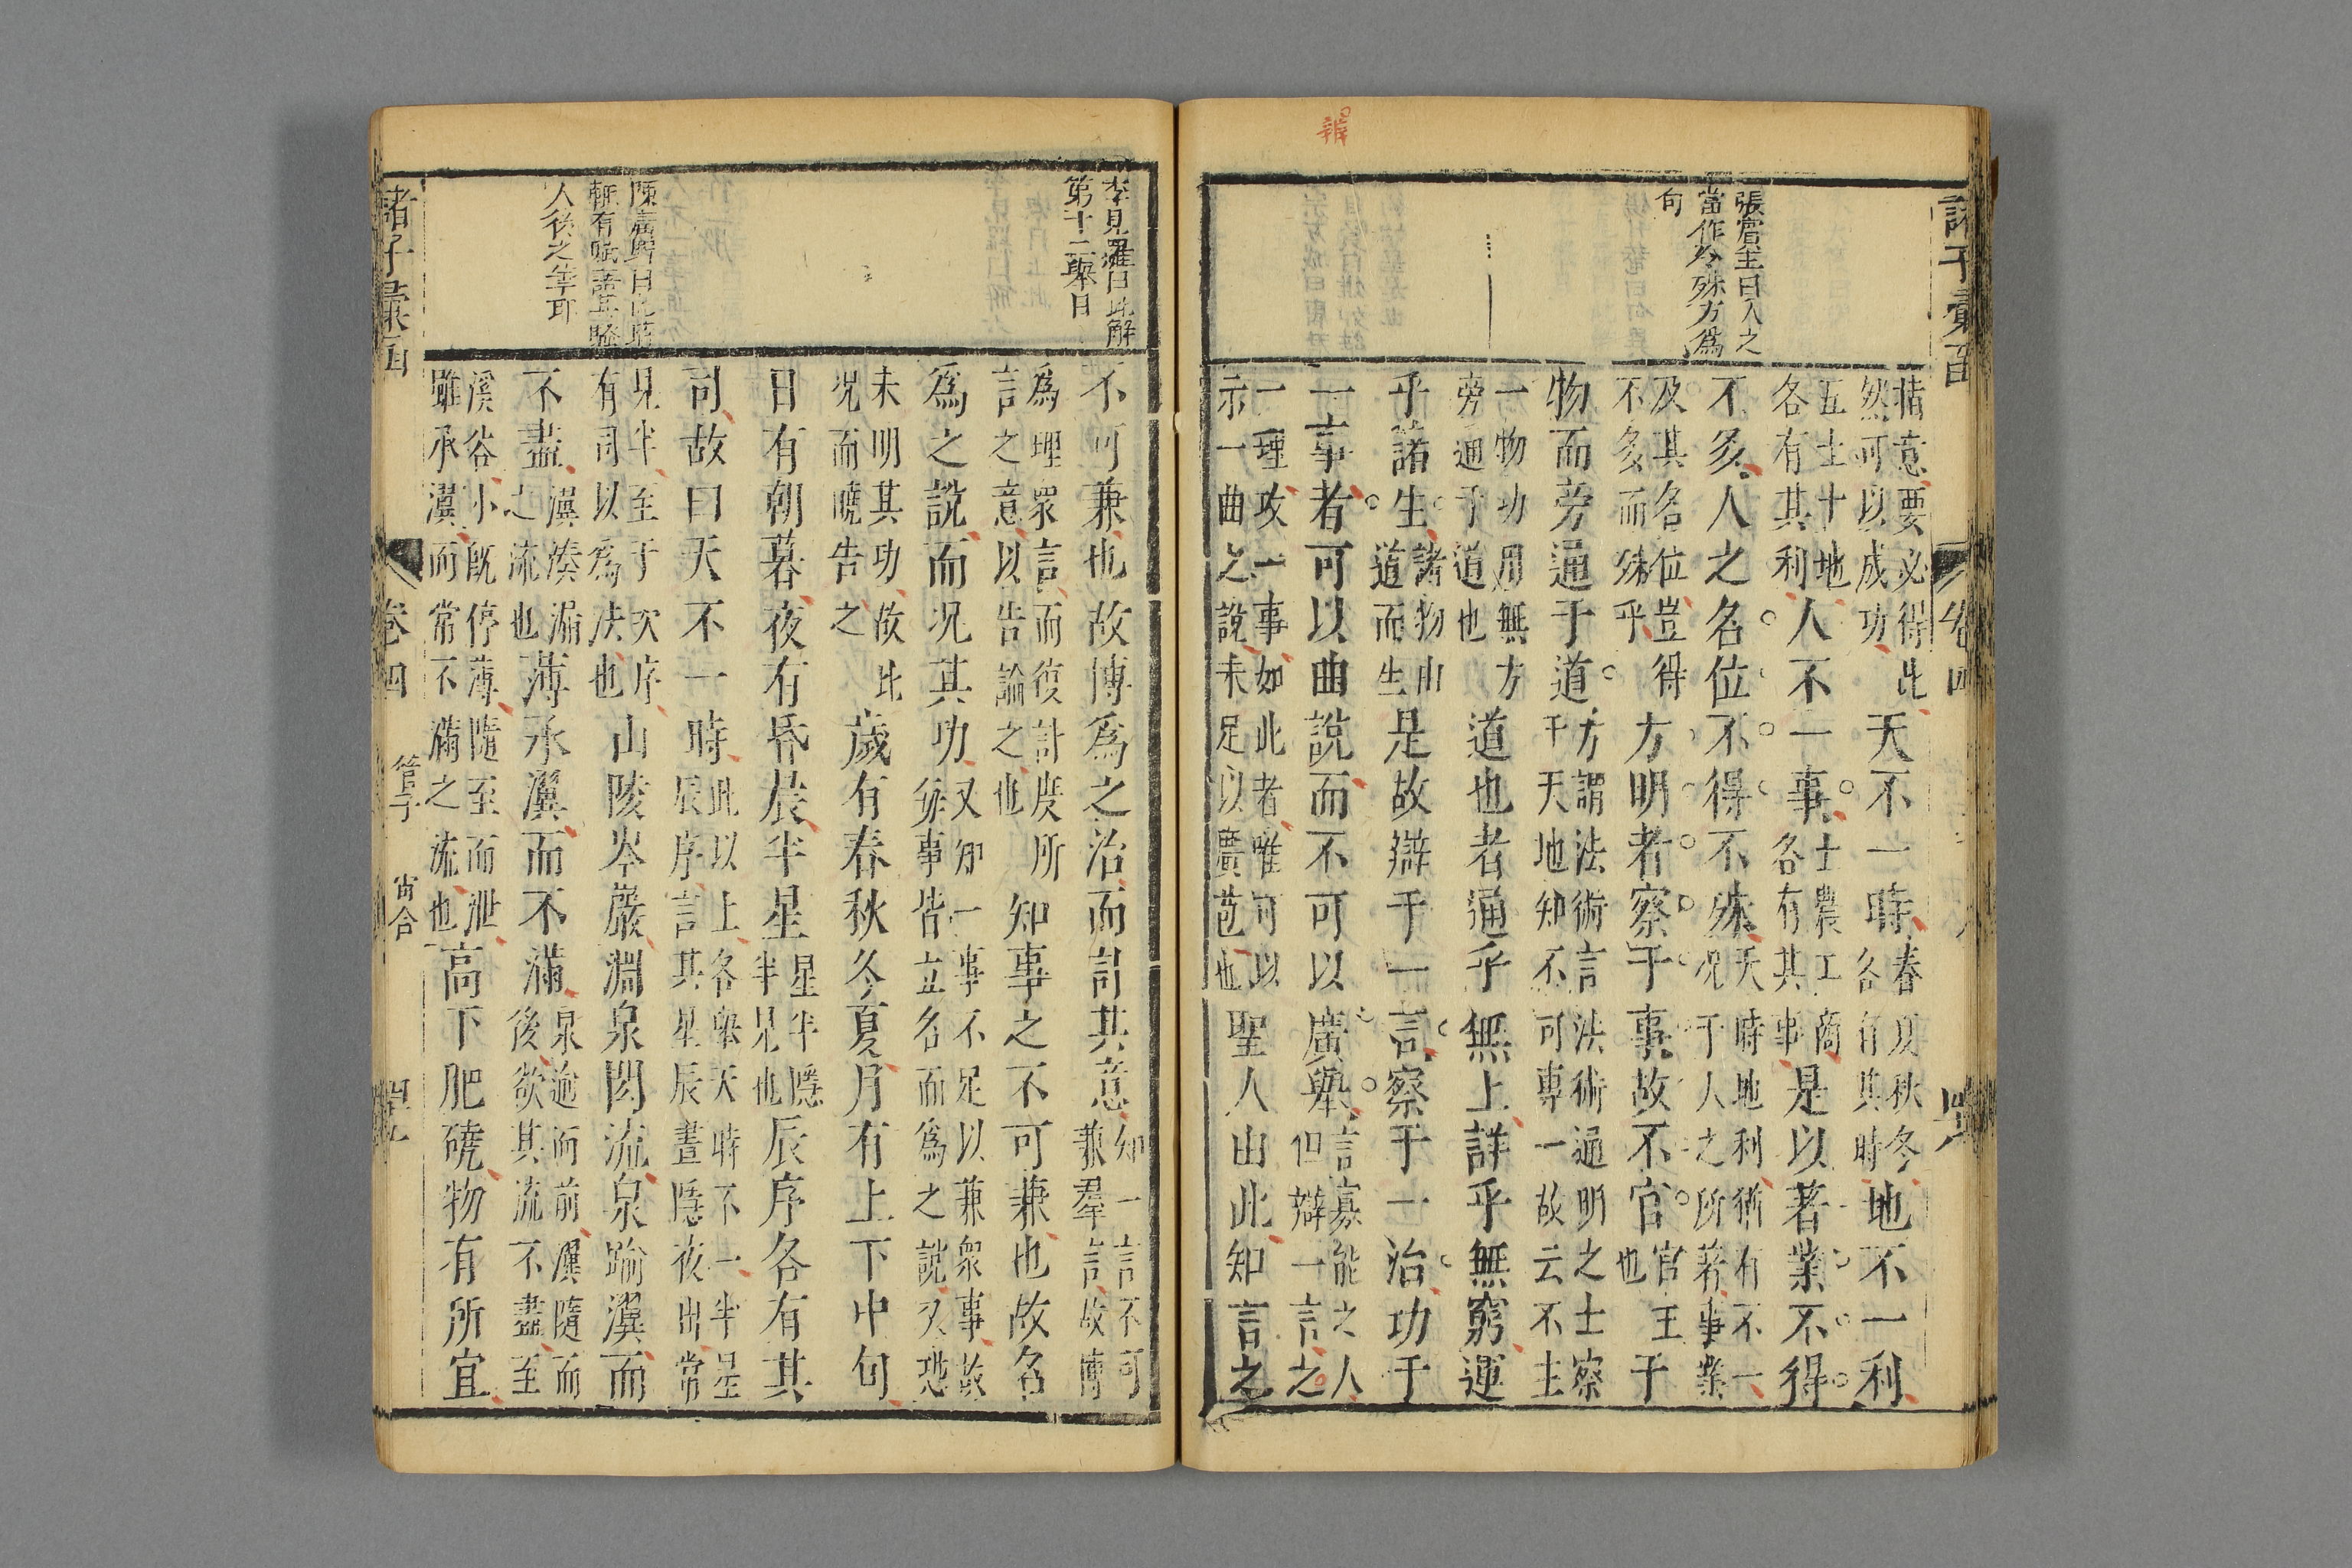 辨
張賓王曰人之
當作分殊方爲
句
諸子彙函
卷四
措意要必得比
然可以成功
天不一時
春夏秋冬
各有其時
地不一利
五土十地
各有其利
人不一事
士農工商
各有其事
是以著業不得
不多人之名位不得不殊
天時地利猶有不一
况于人之所著事業
及其名位豈得
不多而殊乎
方明者察于事故不官
官主于
也
物而旁通于道
方謂法術言法術通明之士察
于天地知不可專一故云不主
一物功用無方
旁通于道也
道也者通乎無上詳乎無窮運
乎諸生
諸物由
道而生
是故辯于一言察于一治功于
一事者可以曲說而不可以廣舉
言寡能之人
但辯一言之
一理攻一事如此者唯可以
示一曲之說未足以廣苞也
聖人由此知言之
李見羅曰此解
第十二舉目
陳廣野曰此時
人後之竿耳
不可兼也故博爲之治而計其意
知一言不可
兼羣言故博
爲理衆言而復計度所
言之意以告論之也
知事之不可兼也故名
爲之說而况其功
又知一事不足以兼衆事故
殊事皆立名而爲之說又恐
未明其功故比
况而曉告之
歲有春秋冬夏月有上下中旬
日有朝暮夜有昏晨半星
星半隱
半見也
辰序各有其
司故曰天不一時
此以上各舉天時不一半星
辰序言其星辰晝隱夜出常
見半至于次序
有司以爲法也
山陵岑巖淵泉閎流泉踰瀷而
不盡
瀷湊漏
之流也
薄承瀷而不滿
泉逾而前瀷隨而
後欲其流不盡至
溪谷小既停薄隨至而泄
雖承瀷而常不滿之流也
高下肥磽物有所宜
諸子彙函
卷四
管子
宙合